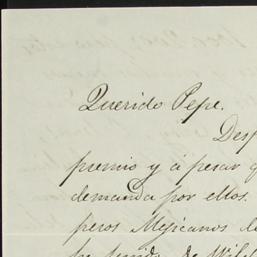 Querido Pepe.
Desp
premio y á pesar q
demanda por ellos.
pesos Mejicanos de
he tenido de